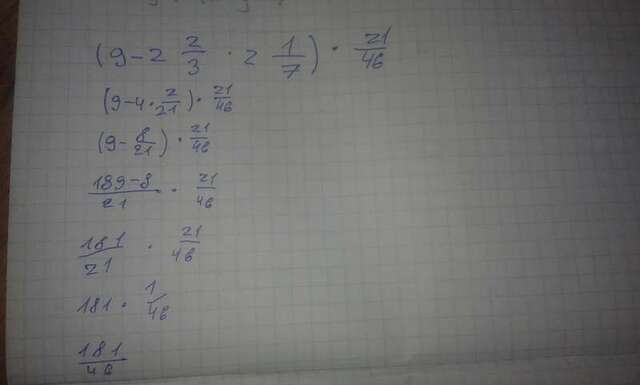 (9-2 2/3 · 2 1/7) · 21/46
(9-4·2/21)·21/46
(9-8/21)·21/46
189-8/21 · 21/46
181/21 · 21/46
181·1/46
181/46